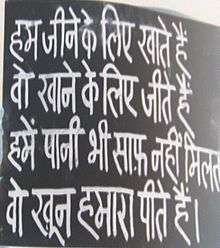 हम जीने के लिए खाते हैं
वो खाने के लिए जीते हैं
हमें पानी भी साफ़ नहीं मिलत
वो खून हमारा पीते हैं।